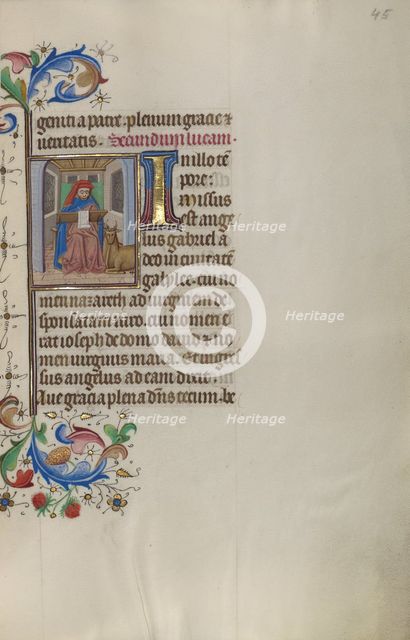 45
geniti a patre. plenum gracie &
ueritatis. Secundum lucam.
In illo tē
pore.
Missus
est ange
lus gabriel a
deo in ciuitatē
galylee. cui no
men nazareth ad uirginem de
sponsatam uiro. cui nomen e
rat ioseph de domo dauid & no
men uirginis maria. Et ingres
sus angelus ad eam dixit.
Aue gracia plena dn̄s tecum. be
Heritage Heritage
Heritage Heritage Heritage
Heritage Heritage